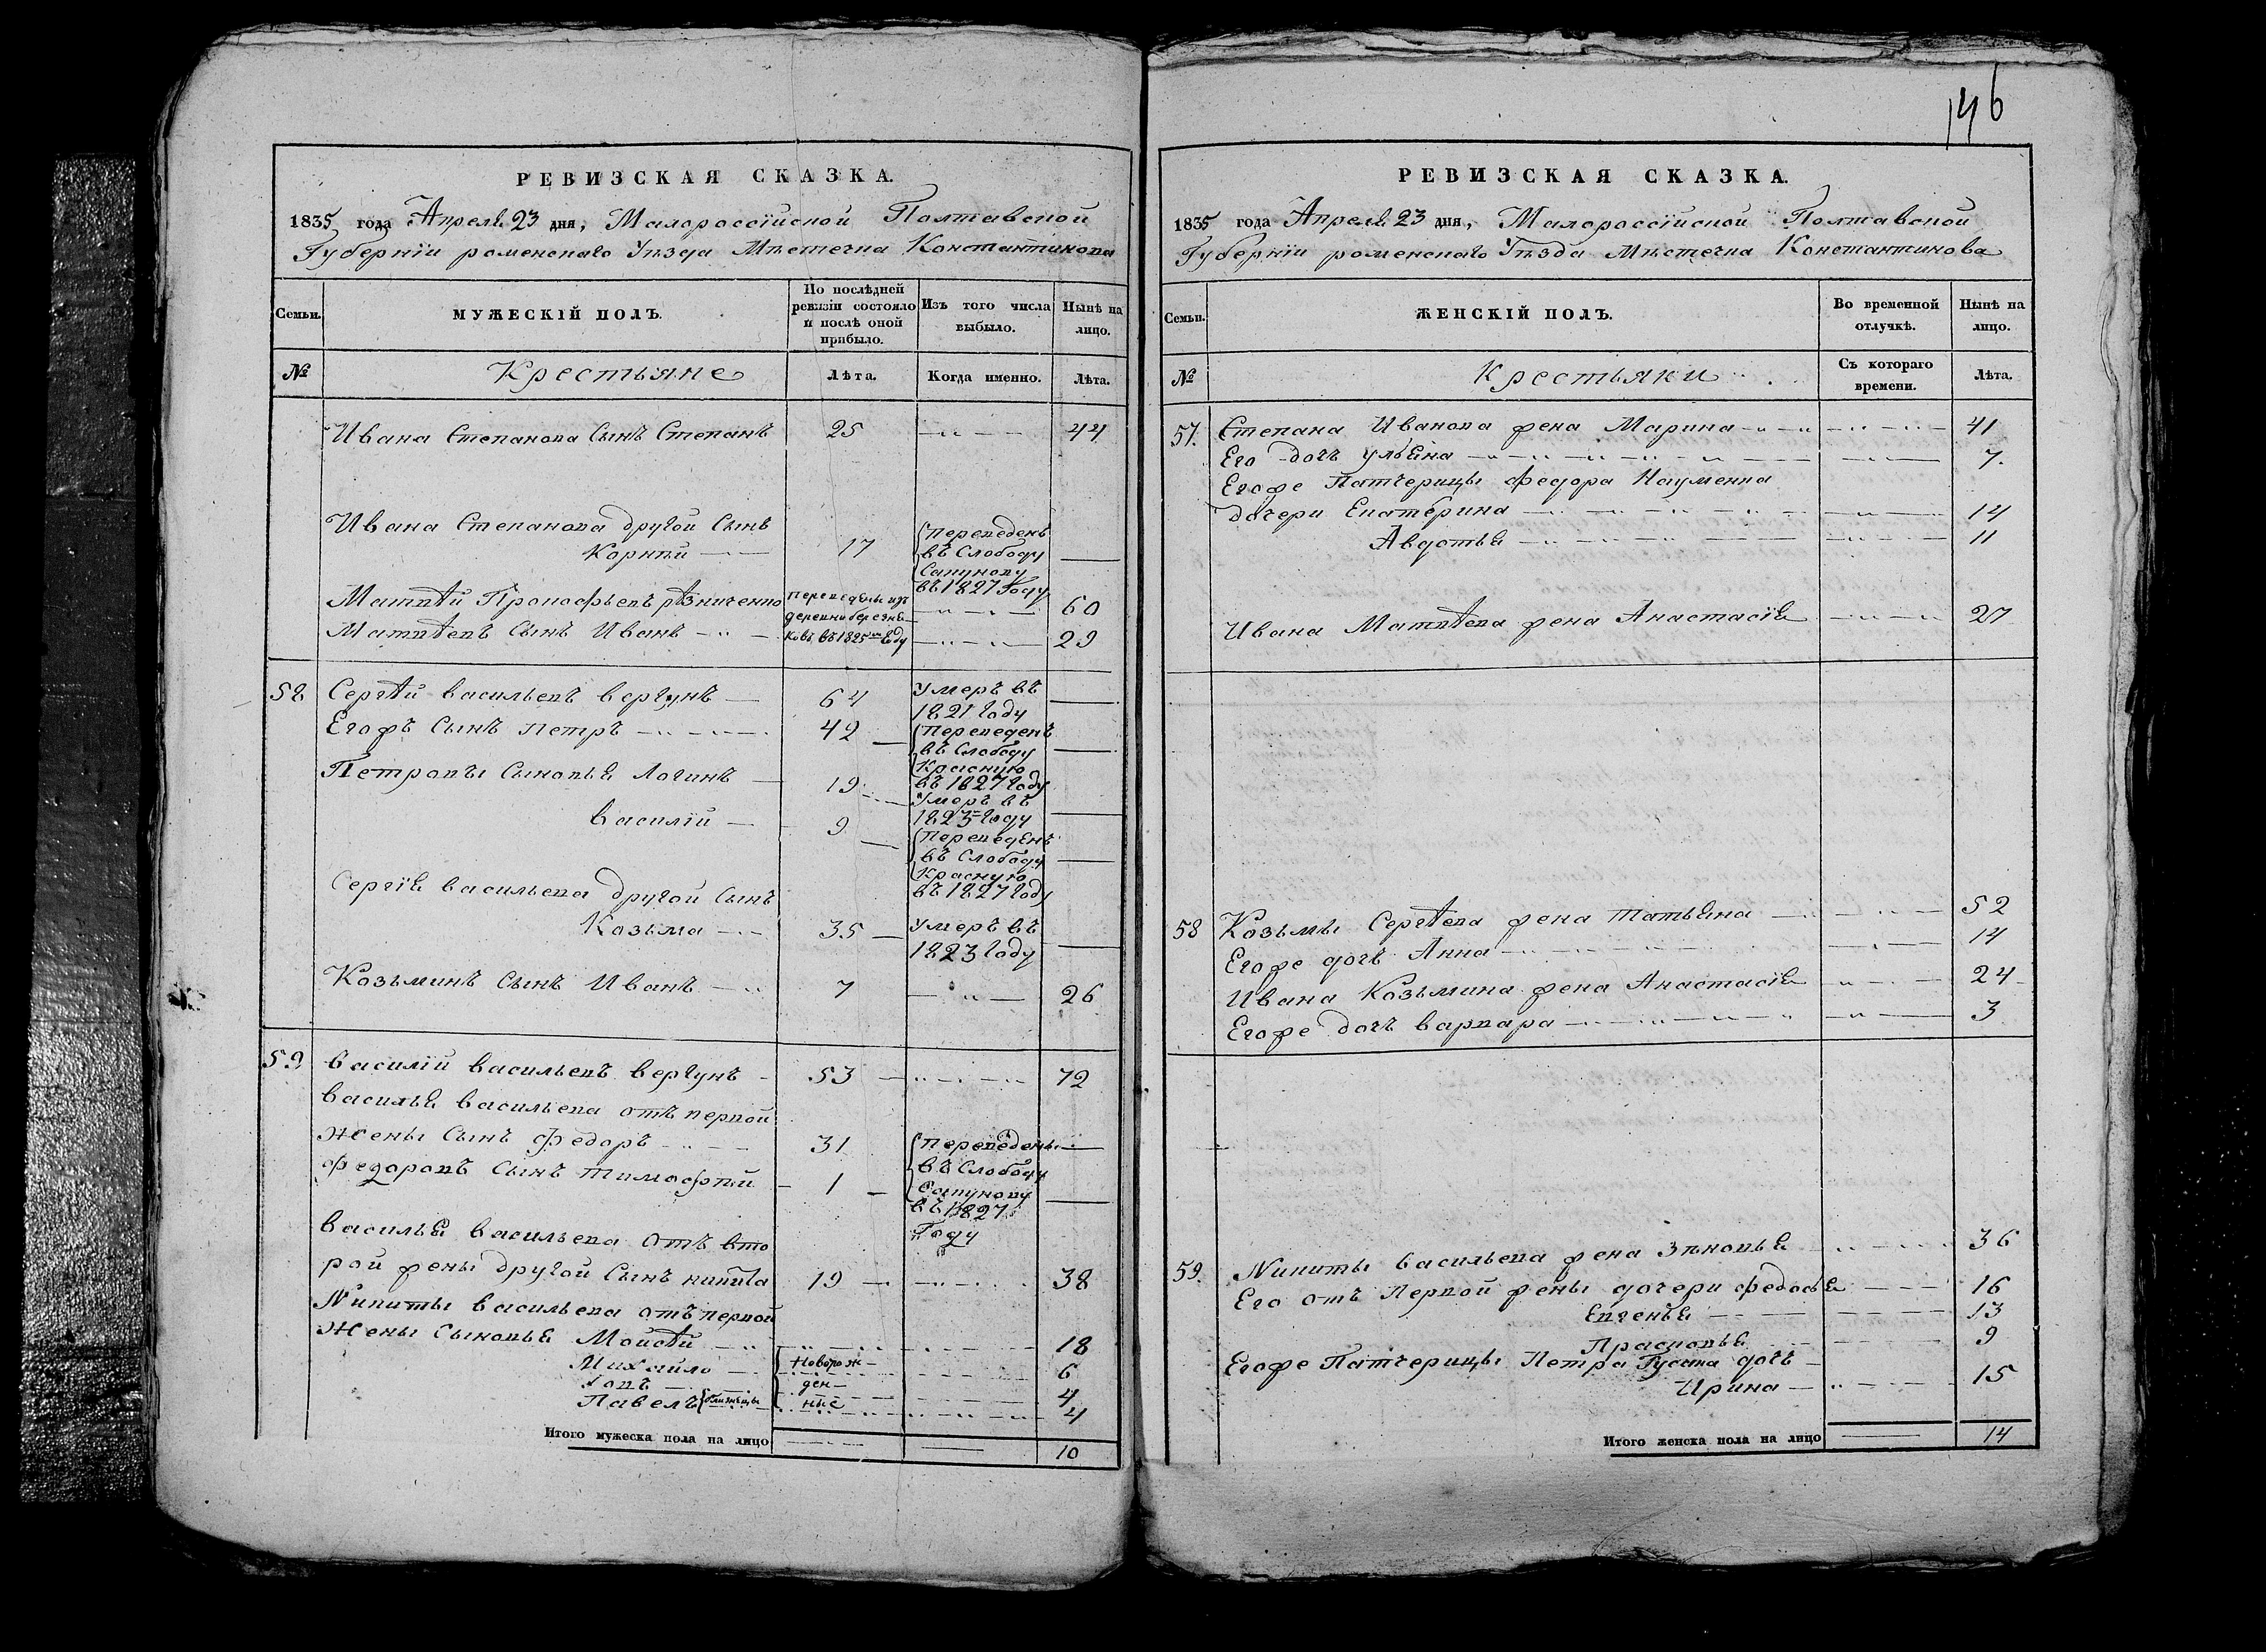 146
РЕВИЗСКАЯ СКАЗКА.
1835 года Апреля 23 дня, Малороссійской Полтавской
Губерніи роменскаго Уѣзда Мѣстечка Константинова
Семьи.
МУЖЕСКІЙ ПОЛЪ.
По послѣдней ревизіи состояло и послѣ оной прибыло.
Изъ того числа выбыло.
Нынѣ на лицо.
№
Крестьяне
Лѣта.
Когда именно.
Лѣта.
Ивана Степанова Сынъ Степанъ 25 44
Ивана Степанова другой Сынъ
Корнѣй 17 переведенъ въ Слободу Сапунову въ 1827 Году
Матвѣй Прокофьевъ рѣзниченко переведены изъ 60
Матвѣевъ Сынъ Иванъ въ 1825 Году 29
58 Сергѣй васильевъ вергунъ 64 Умеръ въ 1821 году
Егожъ Сынъ Петръ 42 Переведенъ въ Слободу Красную въ 1827 году
Петровы Сыновья Логинъ 19 Умеръ въ 1823 году
василій 9 Переведенъ въ Слободу Красную въ 1827 году
Сергія васильева другой Сынъ
Козьма 35 Умеръ въ 1823 году
Козьминъ Сынъ Иванъ 7 26
59 василій васильевъ вергунъ 53 72
василья васильева отъ первой
Жены Сынъ федоръ 31 Переведены въ Слободу Сапунову въ 1827 Году
федоровъ Сынъ тимофѣй 1
василья васильева Отъ вто
рой жены другой Сынъ никита 19 38
Никиты васильева отъ первой
Жены Сыновья Мойсѣй 18
Михайло Новорож 6
ден 4
Павелъ близнецы ные 4
Итого мужеска пола на лицо 10
РЕВИЗСКАЯ СКАЗКА.
1835 года Апреля 23 дня, Малороссійской Полтавской
Губерніи роменскаго Уѣзда Мѣстечка Константинова
Семьи.
ЖЕНСКІЙ ПОЛЪ.
Во временной отлучкѣ.
Нынѣ на лицо.
№
Крестьяки
Съ котораго времени.
Лѣта.
57. Степана Иванова жена Марина 41
Его дочь ульяна 7.
Егоже Патчерицы федора Науменка
дочери Екатерина 14
Авдотья 11
Ивана Матвѣева жена Анастасія 27
58 Козьмы Сергѣева жена татьяна 52
Егоже дочь Анна 14
Ивана Козьмина жена Анастасія 24
Егоже дочь варвара 3
59. Никиты васильева жена Зѣновья 36
Его отъ Первой жены дочери федосья 16
Евгенья 13
Прасковья 9
Егоже Патчерицы Петра дочь
Ирина 15
Итого женска пола на лицо 14